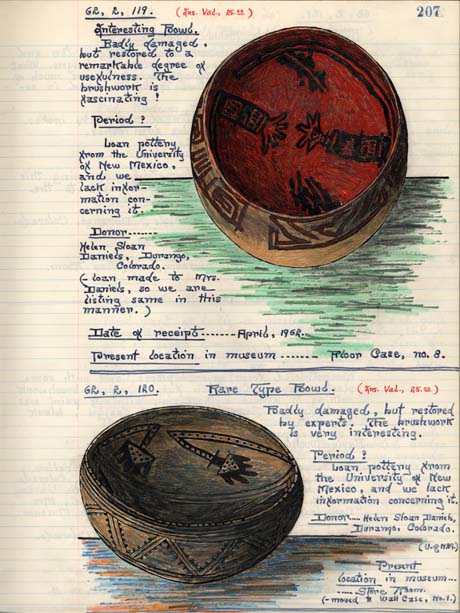 62, 2, 119. (Ins. Val., 25.00)
207
Interesting Bowl.
Badly damaged,
but restored to a
remarkable degree of
usefulness. The
brushwork is
fascinating!
Period?
Loan pottery
from the University
of New Mexico,
and we
lack infor-
mation con-
cerning it.
Donor.......
Helen Sloan
Daniels, Durango,
Colorado.
(-Loan made to Mrs.
Daniels, so we are
listing same in this
manner.)
Date of receipt...... April, 1962.
Present location in museum ...... Floor Case, no. 8.
62, 2, 120. Rare Type Bowl. (Ins. Val., 25.00)
Badly damaged, but restored
by experts. The brushwork
is very interesting.
Period?
Loan pottery from
the University of New
Mexico, and we lack
information concerning it.
Donor.... Helen Sloan Daniels,
Durango, Colorado.
Present
location in museum...
..... Store Room.
(-moved to Wall Case, no. 1.)